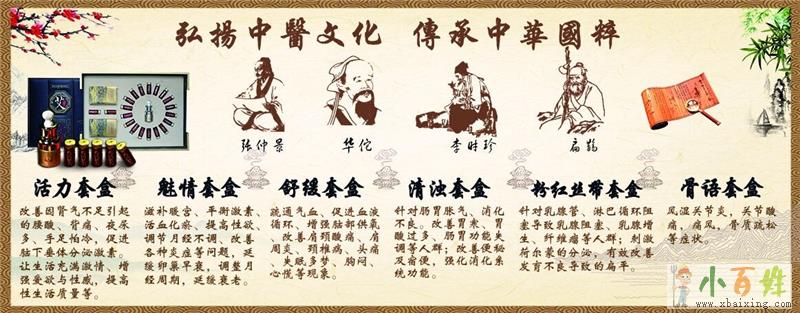 弘揚中醫文化 傳承中華國粹
张仲景
华佗
李时珍
扁鹊
活力套盒
改善因肾气不足引起
的腰酸、背痛、夜尿
多、手足怕冷,促进
脑下垂体分泌激素。
让生活充满激情,增
强受欲与性感,提高
性生活质量等。
魅情套盒
滋补暖宫、平衡激素、
活血化瘀、提高性欲、
调节月经不调、改善
各种炎症等问题,延
缓卵巢早衰,调整月
经周期,延缓衰老。
舒缓套盒
疏通气血、促进血液
循环、增强脑部供氧
、改善肩颈酸痛、肩
周炎、颈椎病、头痛
、失眠多梦、胸闷、
心慌等现象。
清浊套盒
针对肠胃胀气、消化
不良。改善胃寒、胃
酸过多、肠胃功能失
调等人群;改善便秘
及宿便,强化消化系
统功能。
粉红丝带套盒
针对乳腺管、淋巴循环阻
塞导致乳腺导致、乳腺增
生、纤维瘤等人群;刺激
荷尔蒙的分泌,有效改善
发育不良导致的扁平。
骨语套盒
风湿关节炎,关节酸
痛,痛风,骨质疏松
等症状。
小百姓
www.xbaixing.com